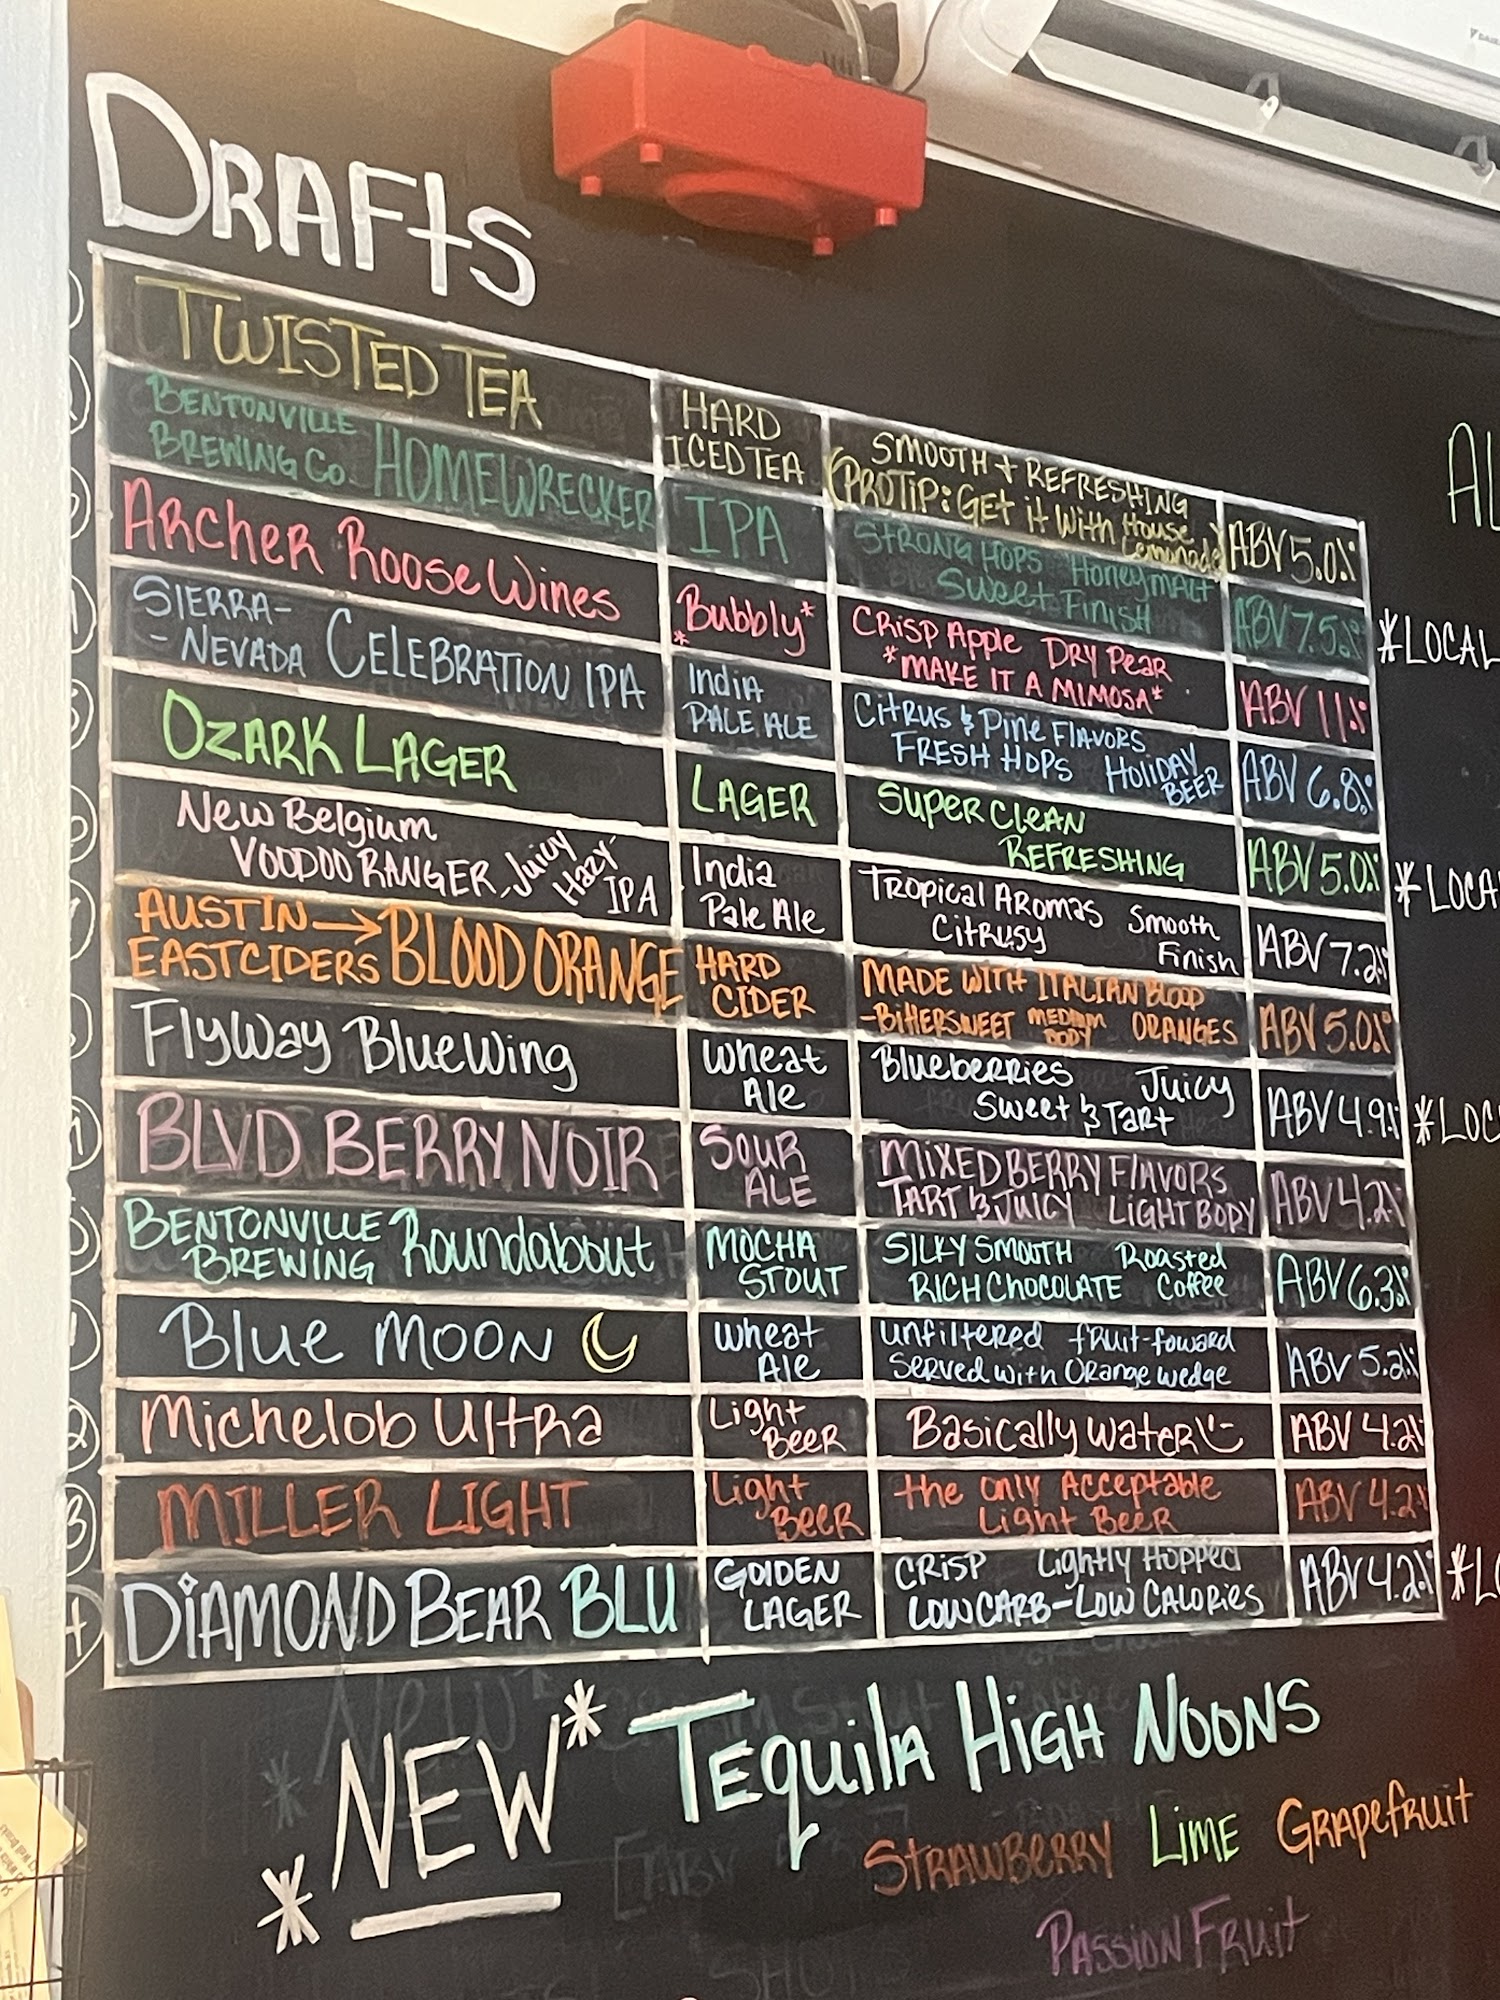 DRAFTS
TWISTED TEA
HARD
ICED TEA
SMOOTH + REFRESHING
(PROTIP: GET iT WITH HOUSE
Lemonade)
ABV 5.0%
BENTONVILLE
BREWING CO. HOMEWRECKER
IPA
STRONG HOPS HONEY MALT
SWEET FINISH
ABV 7.5%
*LOCAL
ARCHER ROOSE WINES
*Bubbly*
CRISP APPLE DRY PEAR
*MAKE IT A MIMOSA*
ABV 11%
SIERRA-
-NEVADA CELEBRATION IPA
INDIA
PALE ALE
CITRUS & PINE FLAVORS
FRESH HOPS HOLIDAY
BEER
ABV 6.8%
OZARK LAGER
LAGER
SUPER CLEAN
REFRESHING
ABV 5.0%
*LOCA
New Belgium
VOODOO RANGER - Juicy
Hazy-
IPA
India
Pale Ale
TROPICAL AROMAS Smooth
CITRUSY Finish
ABV 7.2%
AUSTIN →
EASTCIDERS BLOOD ORANGE
HARD
CIDER
MADE WITH ITALIAN BLOOD
-BITTERSWEET MEDIUM
BODY ORANGES
ABV 5.0%
FLYWAY BLUEWING
WHEAT
ALE
BLUEBERRIES JUICY
SWEET & TART
ABV 4.9%
*LOC
BLVD BERRY NOIR
SOUR
ALE
MIXED BERRY FLAVORS
TART & JUICY LIGHT BODY
ABV 4.2%
BENTONVILLE
BREWING Roundabout
MOCHA
STOUT
SILKY SMOOTH Roasted
RICH CHOCOLATE Coffee
ABV 6.3%
Blue MOON
wheat
Ale
unfiltered fruit-foward
served with Orange wedge
ABV 5.2%
Michelob Ultra
Light
Beer
Basically water
ABV 4.2%
MILLER LIGHT
Light
Beer
the only Acceptable
Light Beer
ABV 4.2%
DIAMOND BEAR BLU
GOLDEN
LAGER
CRISP Lightly Hopped
LOW CARB-LOW CALORIES
ABV 4.2%
*LO
*NEW* TEQUILA HIGH NOONS
STRAWBERRY LIME GRAPEFRUIT
PASSION FRUIT
AL